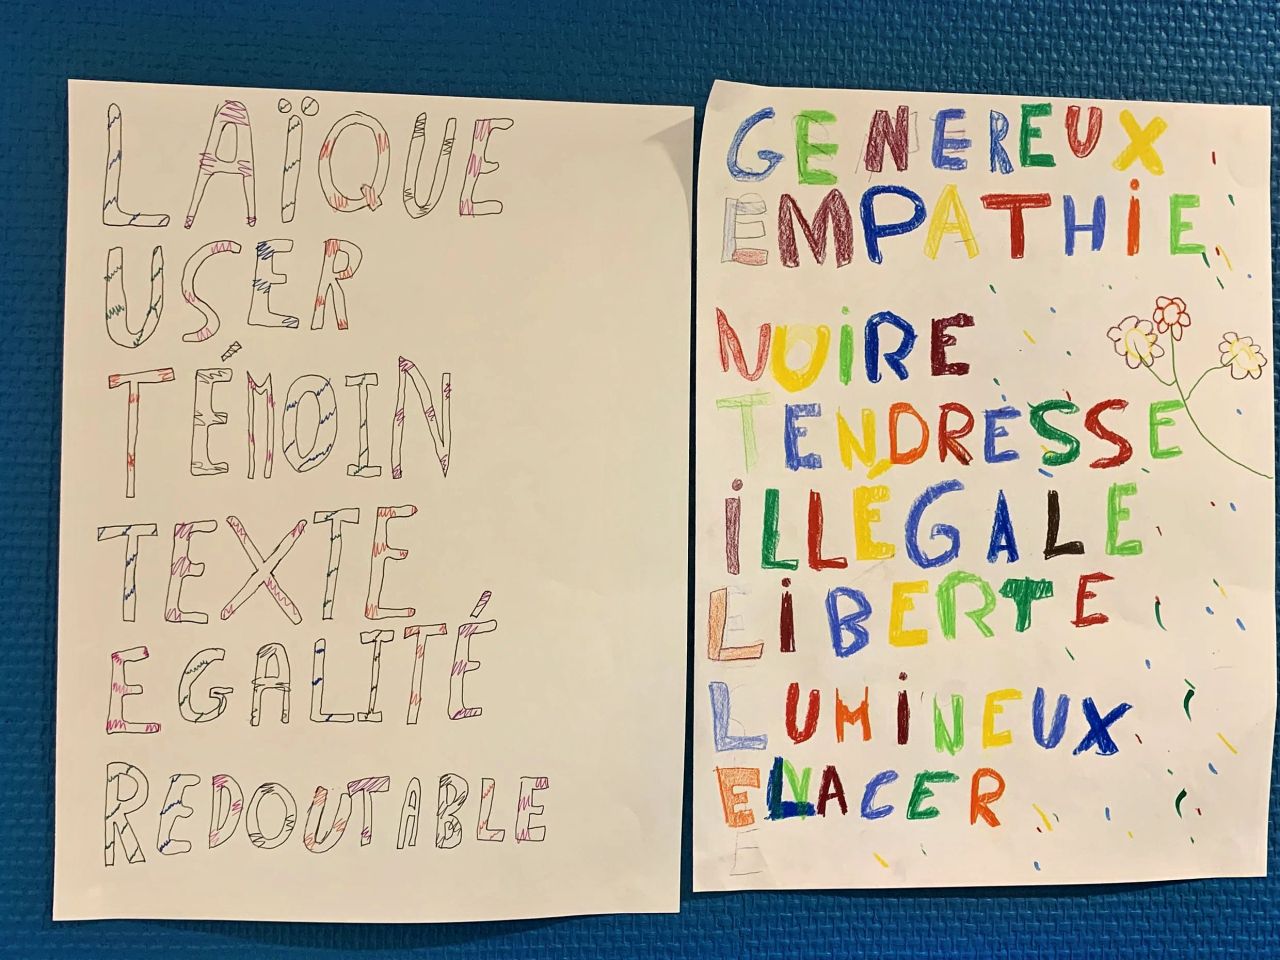 LAÏQUE
USER
TÉMOIN
TEXTE
EGALITÉ
REDOUTABLE
GENEREUX
EMPATHIE
NOIRE
TENDRESSE
ILLÉGALE
LIBERTE
LUMINEUX
ENACER
E